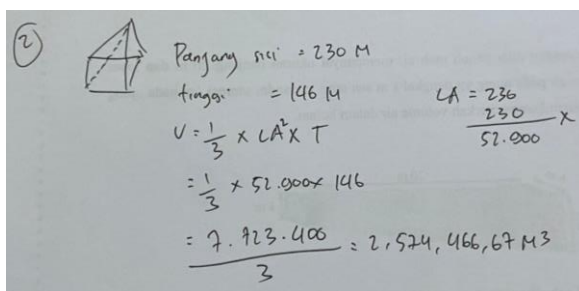 2
Panjang sisi = 230 M
tinggi = 146 M
LA = 230
230 x
52.900
V = 1/3 x LA² x T
= 1/3 x 52.900 x 146
= 7.723.400 / 3 = 2,574,466,67 M3